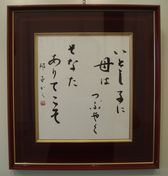 いとしるに
母は
つぶやく
そなた
ありてこそ